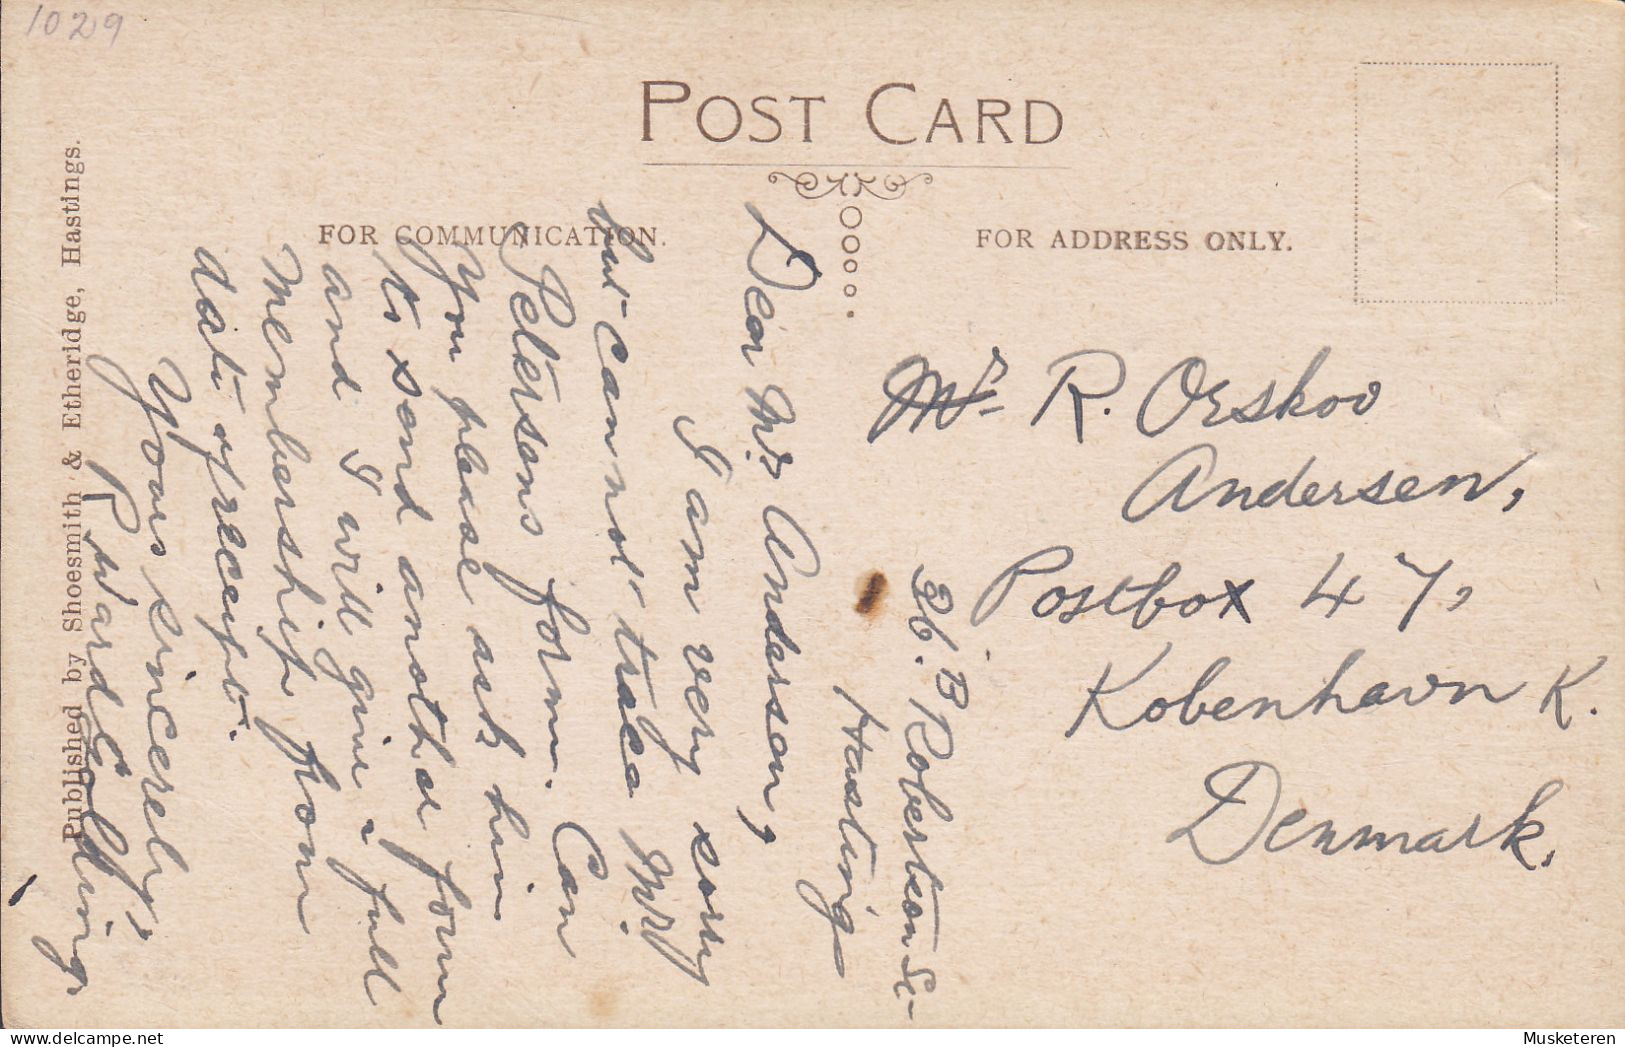 1029
POST CARD
FOR COMMUNICATION.
FOR ADDRESS ONLY.
Published by Shoesmith & Etheridge, Hastings.
36.B Robertson St
Hastings
Dear Mr Anderson,
I am very sorry
but cannot trace Mr
Petersons form. Can
You please ask him
to send another form
and I will give full
Membership from
date of receipt.
Yours sincerely,
R Ward Golding
Mr R. Orskov
Andersen,
Postbox 47,
Kobenhavn K.
Denmark.
Musketeren